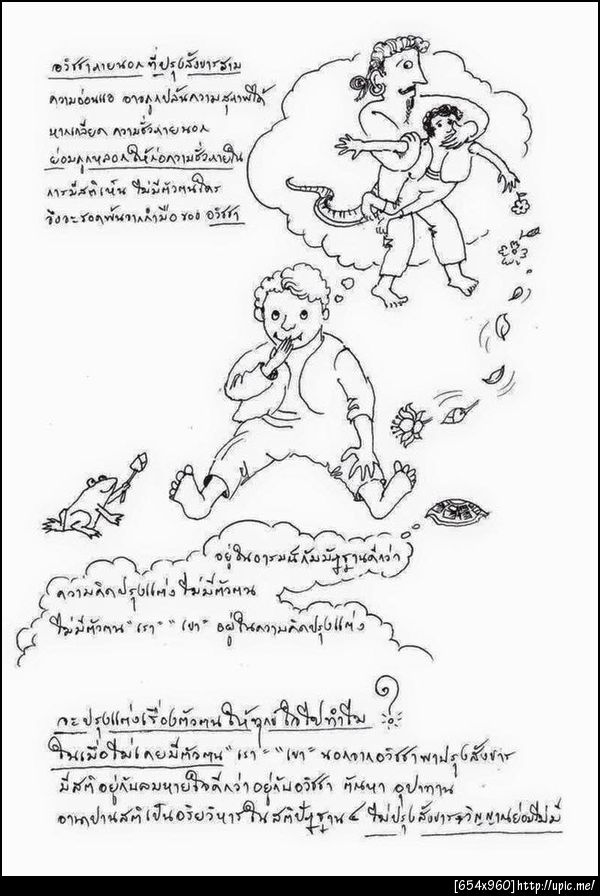 อวิชชาภายนอก ที่ปรุงสังขารสาม
ความอ่อนแอ อาจถูกปล้นความสุภาพได้
หากเกลียด ความชั่วภายนอก
ย่อมถูกหลอกให้ก่อความชั่วภายใน
การมีสติเห็น ไม่มีตัวตนใคร
จึงจะรอดพ้นจากกำมือของ อวิชชา
อยู่ในอารมณ์กัมมัฏฐานดีกว่า
ความคิดปรุงแต่ง ไม่มีตัวตน
ไม่มีตัวตน "เรา" "เขา" อยู่ในความคิดปรุงแต่ง
จะปรุงแต่งเรื่องตัวตน ให้ทุกข์ใจไปทำไม
ในเมื่อไม่เคยมีตัวตน "เรา" "เขา" นอกจากอวิชชาพาปรุงสังขาร
มีสติอยู่กับลมหายใจดีกว่าอยู่กับอวิชชา ตัณหา อุปาทาน
อานาปานสติเป็นอริยวิหารในสติปัฏฐาน ๔ ไม่ปรุงสังขาร วิญญาณย่อมไม่มี
[654x960] http://upic.me/